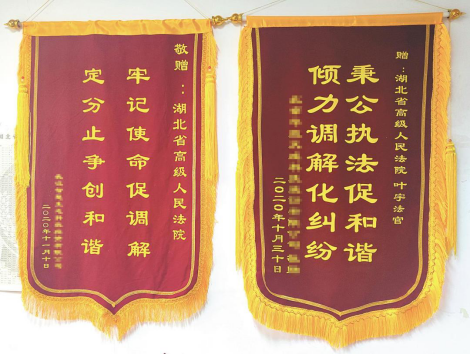 敬赠：湖北省高级人民法院
牢记使命促调解
定分止争创和谐
二〇二〇年十一月十日
赠：湖北省高级人民法院 叶宇法官
秉公执法促和谐
倾力调解化纠纷
二〇二〇年十月三十日